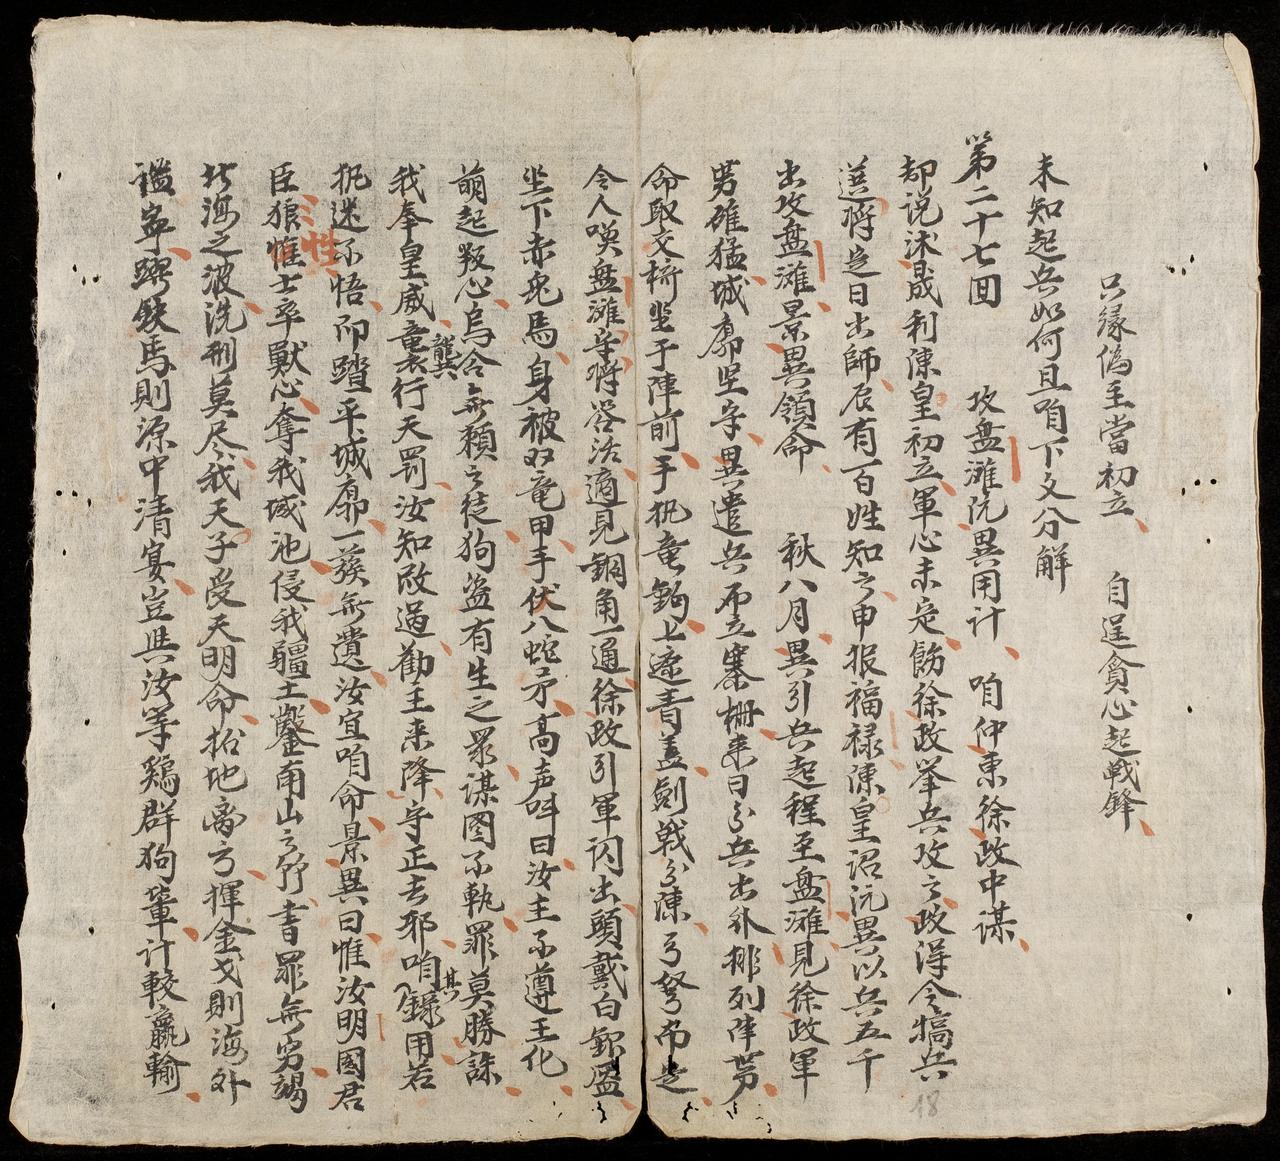 只緣偽主當初立　自逞貪心起戰鋒
未知起兵如何且咱下文分解
第二十七回　攻盘灘阮異用計　咱仲東徐政中谋
却说沐晟利陳皇初立軍心未定飭徐政举兵攻之政淂令犒兵
选將是日出師辰有百姓知之申报福禄陳皇沼阮異以兵五千
出攻盘灘景異領命　秋八月異引兵起程至盘灘見徐政軍
势雄猛城廓坚守異遣兵不立寨柵来日分兵出外排列陣势
命取交椅坐于陣前手执竜鉤上遮青盖劍戟分陳弓弩布是
令人喚盘灘守將答法適見銅角一通徐政引軍闪出頭戴白銀盔
坐下赤兎馬身被双竜甲手伏八蛇矛高声呌曰汝主不遵王化
萌起叛心烏合無頼之徒狗盗有生之眾谋圖不軌罪莫勝誅
我奉皇威龔行天罰汝知改過勸主来降守正去邪咱其錄用若
执迷不悟即踏平城廓一蔟無遺汝宜咱命景異曰惟汝明國君
臣狼性惟士卒獸心奪我城池侵我疆土鑿南山之竹書罪無穷竭
北海之波洗刑莫尽我天子受天明命拾地啇亐揮金戈則海外
谧寧躋鉄馬則源中清宴豈與汝等鷄群狗輩计較贏輸